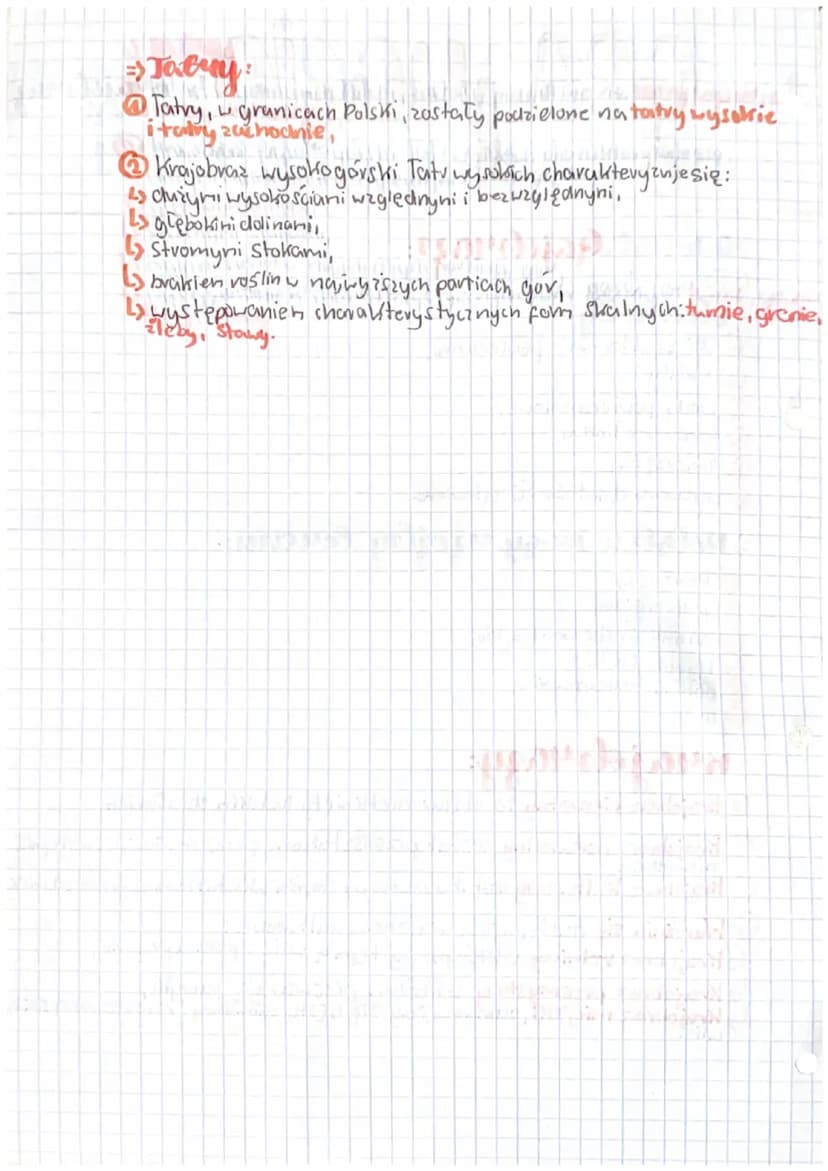 => Tatry:
① Tatry, w granicach Polski, zostały podzielone na tatry wysokie
i tatry zachodnie,
② Krajobraz wysokogórski Tatr wysokich charakteryzuje się:
↳ dużymi wysokościami względnymi i bezwzględnymi,
↳ głębokimi dolinami,
↳ stromymi stokami,
↳ brakiem roślin w najwyższych partiach gór,
↳ występowaniem charakterystycznych form skalnych: turnie, granie,
żleby, stawy.